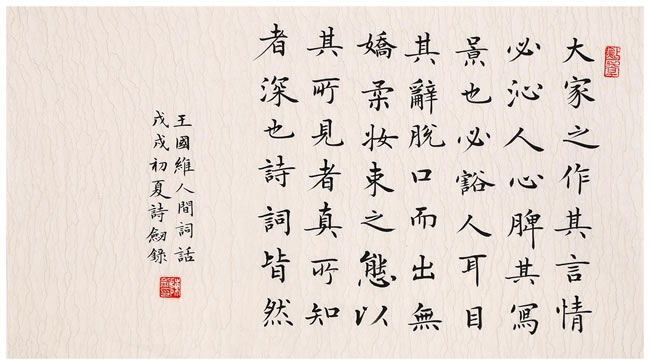 大家之作其言情
必沁人心脾其寫
景也必豁人耳目
其辭脫口而出無
嬌柔妝束之態以
其所見者真所知
者深也詩詞皆然
王國維人間詞話
戊戌初夏詩劍錄